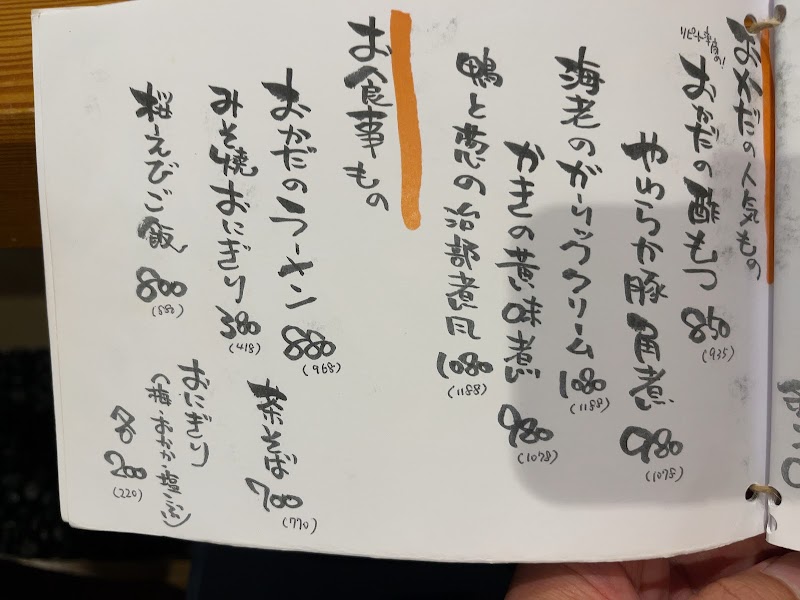 おかだの人気もの
リピート率高め!
おかだの酢もつ 850
(935)
やわらか豚角煮 980
(1078)
海老のガーリッククリーム 1080
(1188)
かきの黄味煮 980
(1078)
鴨と葱の治部煮風 1080
(1188)
お食事もの
おかだのラーメン 880
(968)
茶そば 700
(770)
みそ焼おにぎり 380
(418)
おにぎり
(梅・おかか・塩こぶ)
各 200
(220)
桜えびご飯 800
(880)